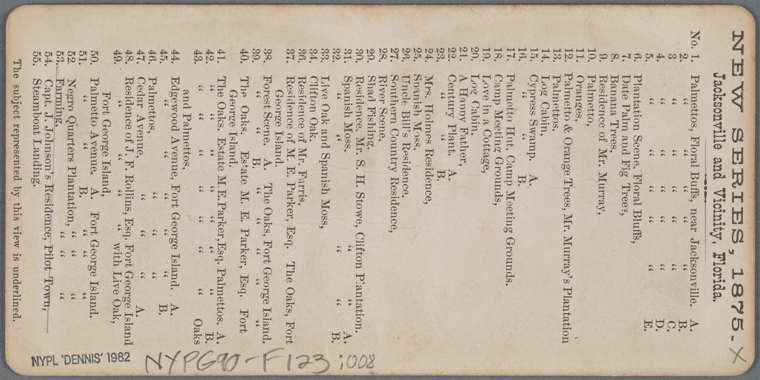 NEW SERIES, 1875. X
Jacksonville and Vicinity, Florida.
No. 1. Palmettos, Floral Buffs, near Jacksonville. A.
2. " " " " " B.
3 " " " " " C.
4. " " " " " D.
5. " " " " " E.
6, Plantation Scene, Floral Bluffs,
7, Date Palm and Fig Trees,
8. Banana Trees,
9. Residence of Mr. Murray,
10. Palmetto,
11. Oranges,
12. Palmetto & Orange Trees, Mr. Murray's Plantation
13. Palmettos.
14. Log Cabin,
15. Cypress Swamp. A.
16. " " B.
17. Palmetto Hut, Camp Meeting Grounds.
18. Camp Meeting Grounds,
19. Love in a Cottage,
20. Log Cabin,
21. A Happy Father,
22. Century Plant. A.
23. " " B.
24. Mrs. Holmes Residence,
25. Spanish Moss,
26. Uncle Bill's Residence,
27. Southern Country Residence,
28. River Scene,
29. Shad Fishing,
30. Residence, Mr. S. H. Stowe, Clifton Plantation.
31. Spanish Moss, " " A.
32. " " " " B.
33. Live Oak and Spanish Moss,
34. Clifton Oak,
36. Residence of Mr. Farris,
37. Residence of M. E. Parker, Esq. The Oaks, Fort
George Island.
38. Forest Scene. A. The Oaks, Fort George Island.
39. " " B. " " " "
40. The Oaks, Estate M. E. Parker, Esq. Fort
George Island
41. The Oaks, Estate M.E.Parker,Esq. Palmettos. A
42. " " " " " B.
43. " " " " Oaks
and Palmettos,
44. Edgewood Avenue, Fort George Island. A.
45. " " " " " B.
46. Palmettos, " " "
47. Cedar Avenue, " " " A.
48. Residence of J. F. Rollins, Esq. Fort George Island
49. " " " " with Live Oak,
Fort George Island,
50. Palmetto Avenue. A. Fort George Island.
51. " " B. " " "
52. Negro Quarters Plantation, " " "
53. Farming, " " "
54. Capt. J. Johnson's Residence, Pilot Town,
55. Steamboat Landing.
The subject represented by this view is underlined.
NYPL 'DENNIS' 1982
NYPG90-F123:008